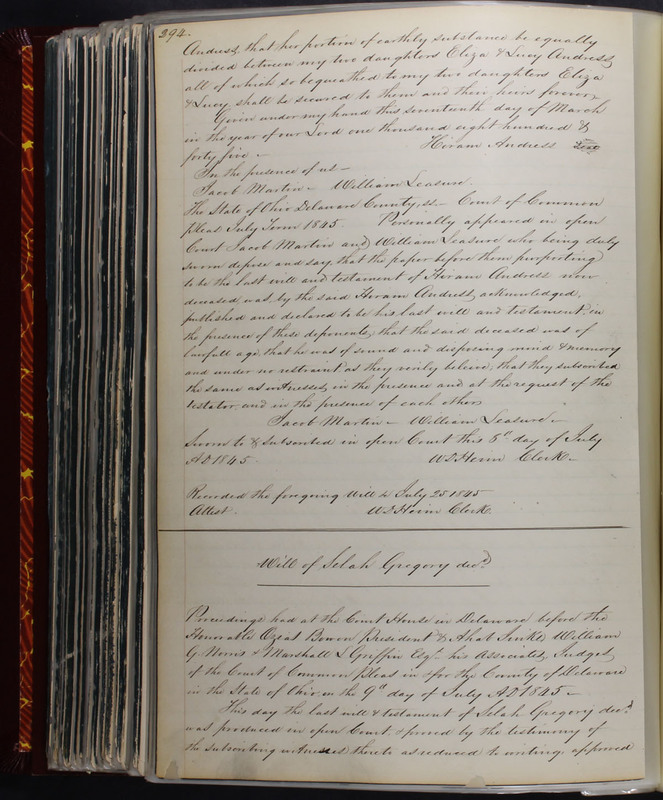 394.
Andress, that her portion of earthly substance be equally
divided between my two daughters Eliza & Lucy Andress,
all of which so bequeathed to my two daughters Eliza
& Lucy shall be secured to them and their heirs forever.
Given under my hand this seventeenth day of March
in the year of our Lord one thousand eight hundred &
forty five – Hiram Andress Seal
In the presence of us –
Jacob Martin – William Leasure.
The State of Ohio Delaware County, ss – Court of Common
Pleas July Term 1845. Personally appeared in open
Court Jacob Martin and William Leasure who being duly
sworn depose and say, that the paper before them purporting
to be the last will and testament of Hiram Andress now
deceased was, by the said Hiram Andress, acknowledged,
published and declared to be his last will and testament, in
the presence of these deponents, that the said deceased was of
lawfull age, that he was of sound and disposing mind & memory
and under no restraint as they verily believe, that they subscribed
the same as witnesses, in the presence and at the request of the
testator, and in the presence of each other
Jacob Martin – William Leasure –
Sworn to & subscribed in open Court this 8th day of July
AD 1845. Clerk –
Recorded the foregoing Will July 25 1845
Attest. Clerk.
Will of Selah Gregory decd
Proceedings had at the Court House in Delaware before the
Honorable Ozias Bowen President & William
G. Norris & Marshall L Griffin Esqrs his Associates, Judges
of the Court of Common Pleas in & for the County of Delaware
in the State of Ohio on the 9th day of July AD 1845 –
This day the last will & testament of Selah Gregory decd
was produced in open Court & proved by the testimony of
the subscribing witnesses thereto as reduced to writing, approved